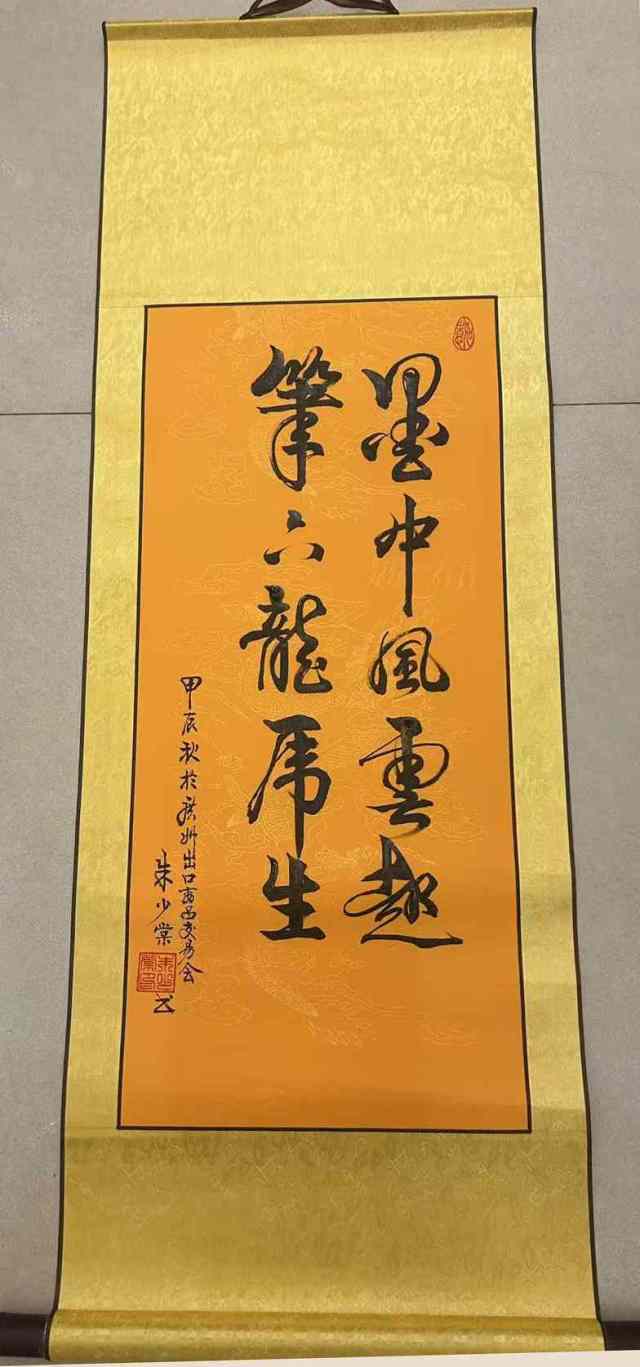 墨中風雲趣
筆下龍虎生
甲辰秋於廣州出口商品交易会
朱少棠
书